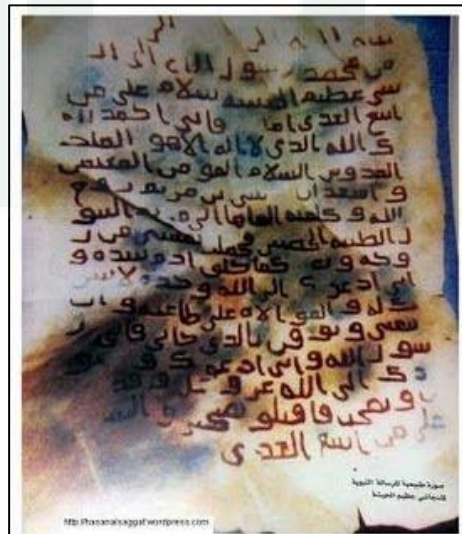 من محمد رسول الله الى النجا
شي عظيم الحبشة سلام على من
اتبع الهدى اما فاني احمد الي
ك الله الذي لا اله الا هو الملك
القدوس السلام المومن المهيمن
و اشهد ان عيسى بن مريم روح
الله و كلمته القاها الى البتو
ل الطيبة الحصينة فحملت بعيسى من ر
وحه و كما خلق ادم بيده و
اني ادعوك الى الله وحده لا شر
يك له و الموالاة على طاعته و ان
تتبعني و توقن بالذي جاني فاني ر
سول الله و اني ادعوك و
ك الى الله عز و جل و قد
و نصحت فاقبلو نصيحتي و السلام
على من اتبع الهدى
صورة طبيعية للرسالة النبوية
للنجاشي عظيم الحبشة
http://hasanalsaggaf.wordpress.com